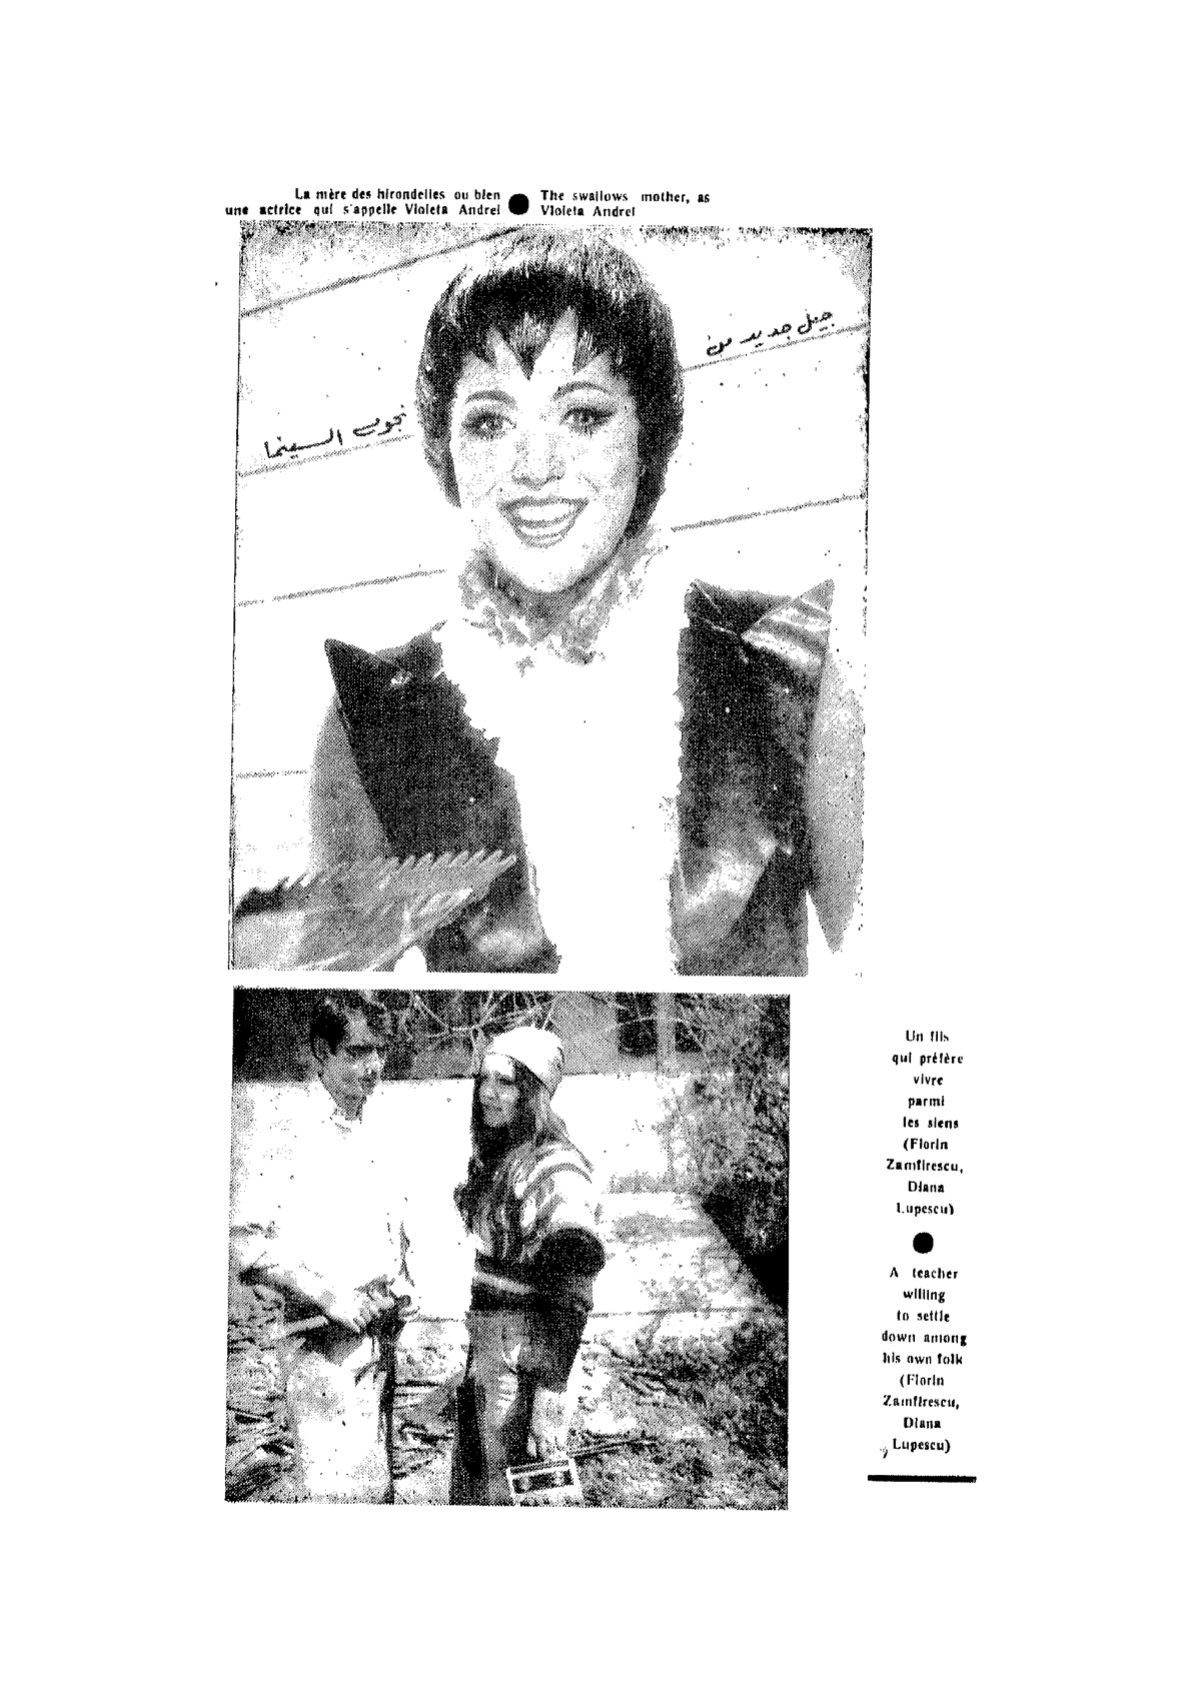 La mère des hirondelles ou bien
une actrice qui s'appelle Violeta Andrei
The swallows mother, as
Violeta Andrei
جيل جديد من
نجوم السينما
Un fils
qui préfère
vivre
parmi
les siens
(Florin
Zamfirescu,
Diana
Lupescu)
A teacher
willing
to settle
down among
his own folk
(Florin
Zamfirescu,
Diana
Lupescu)